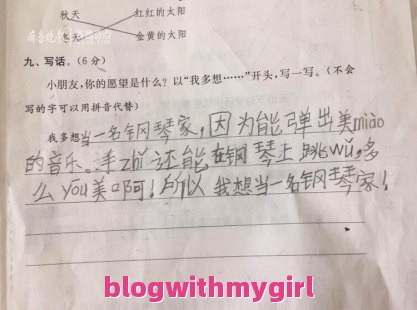 秋天 红红的太阳
冬天 金黄的太阳
九、写话。(6分)
小朋友,你的愿望是什么?以“我多想……”开头,写一写。(不会
写的字可以用拼音代替)
我多想当一名钢琴家,因为能弹出美miào
的音乐。手zhǐ还能在钢琴上跳wǔ,多
么yōu美啊!所以我想当一名钢琴家!
blogwithmygirl